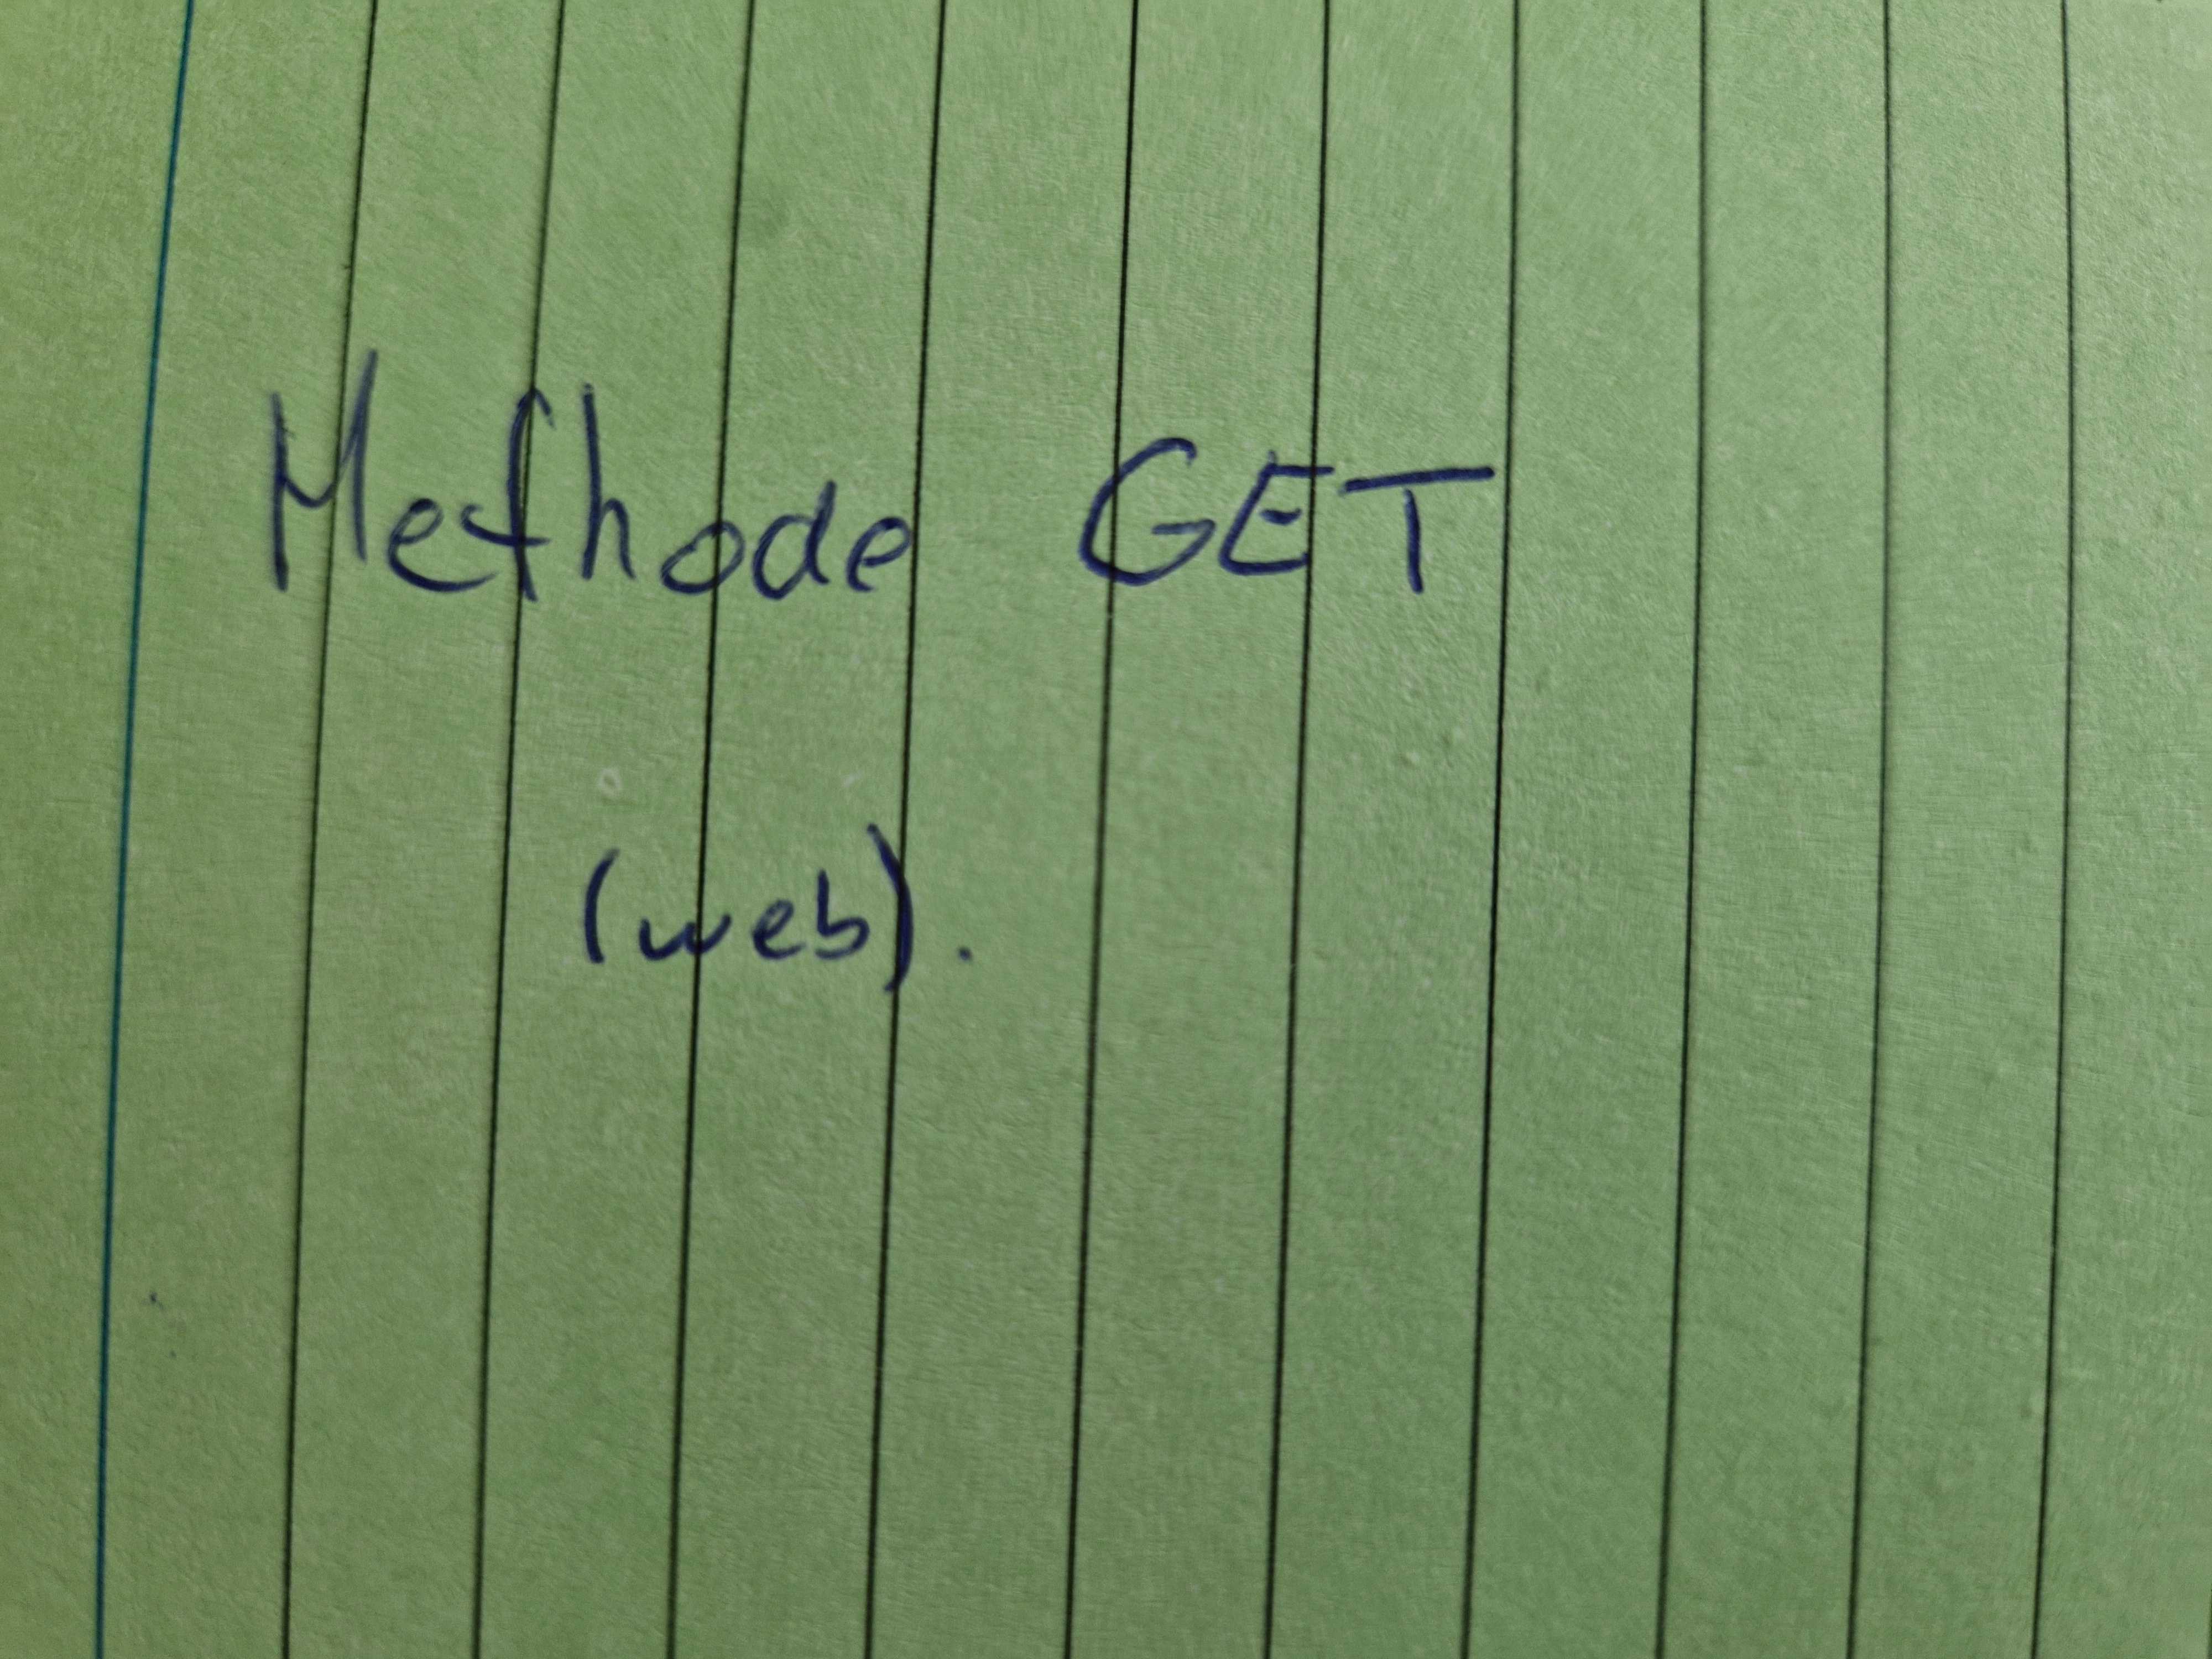 Methode GET
(web).